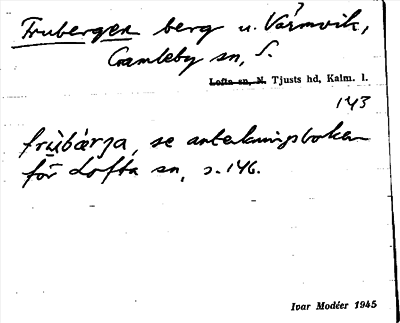 Frubergen berg v. Värmvik,
Gamleby sn, S.
Lofta sn, N. Tjusts hd, Kalm. l.
143
frùbárja, se anteckningsboken
för Lofta sn, s. 146.
Ivar Modéer 1945